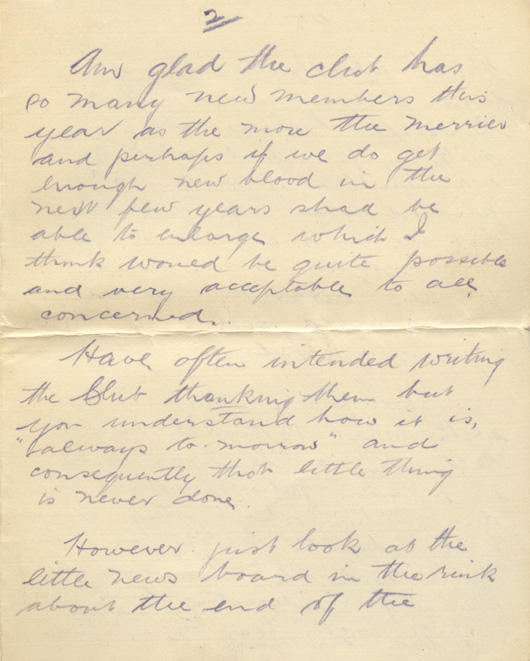 2
Am glad the club has
so many new members this
year as the more the merrier
and perhaps if we do get
enough new blood in the
next few years shad be
able to enlarge which I
think would be quite possible
and very acceptable to all
concerned.
Have often intended writing
the Club thanking them but
you understand how it is,
"always to-morrow" and
consequently that little thing
is never done.
However just look at the
little news board in the rink
about the end of the